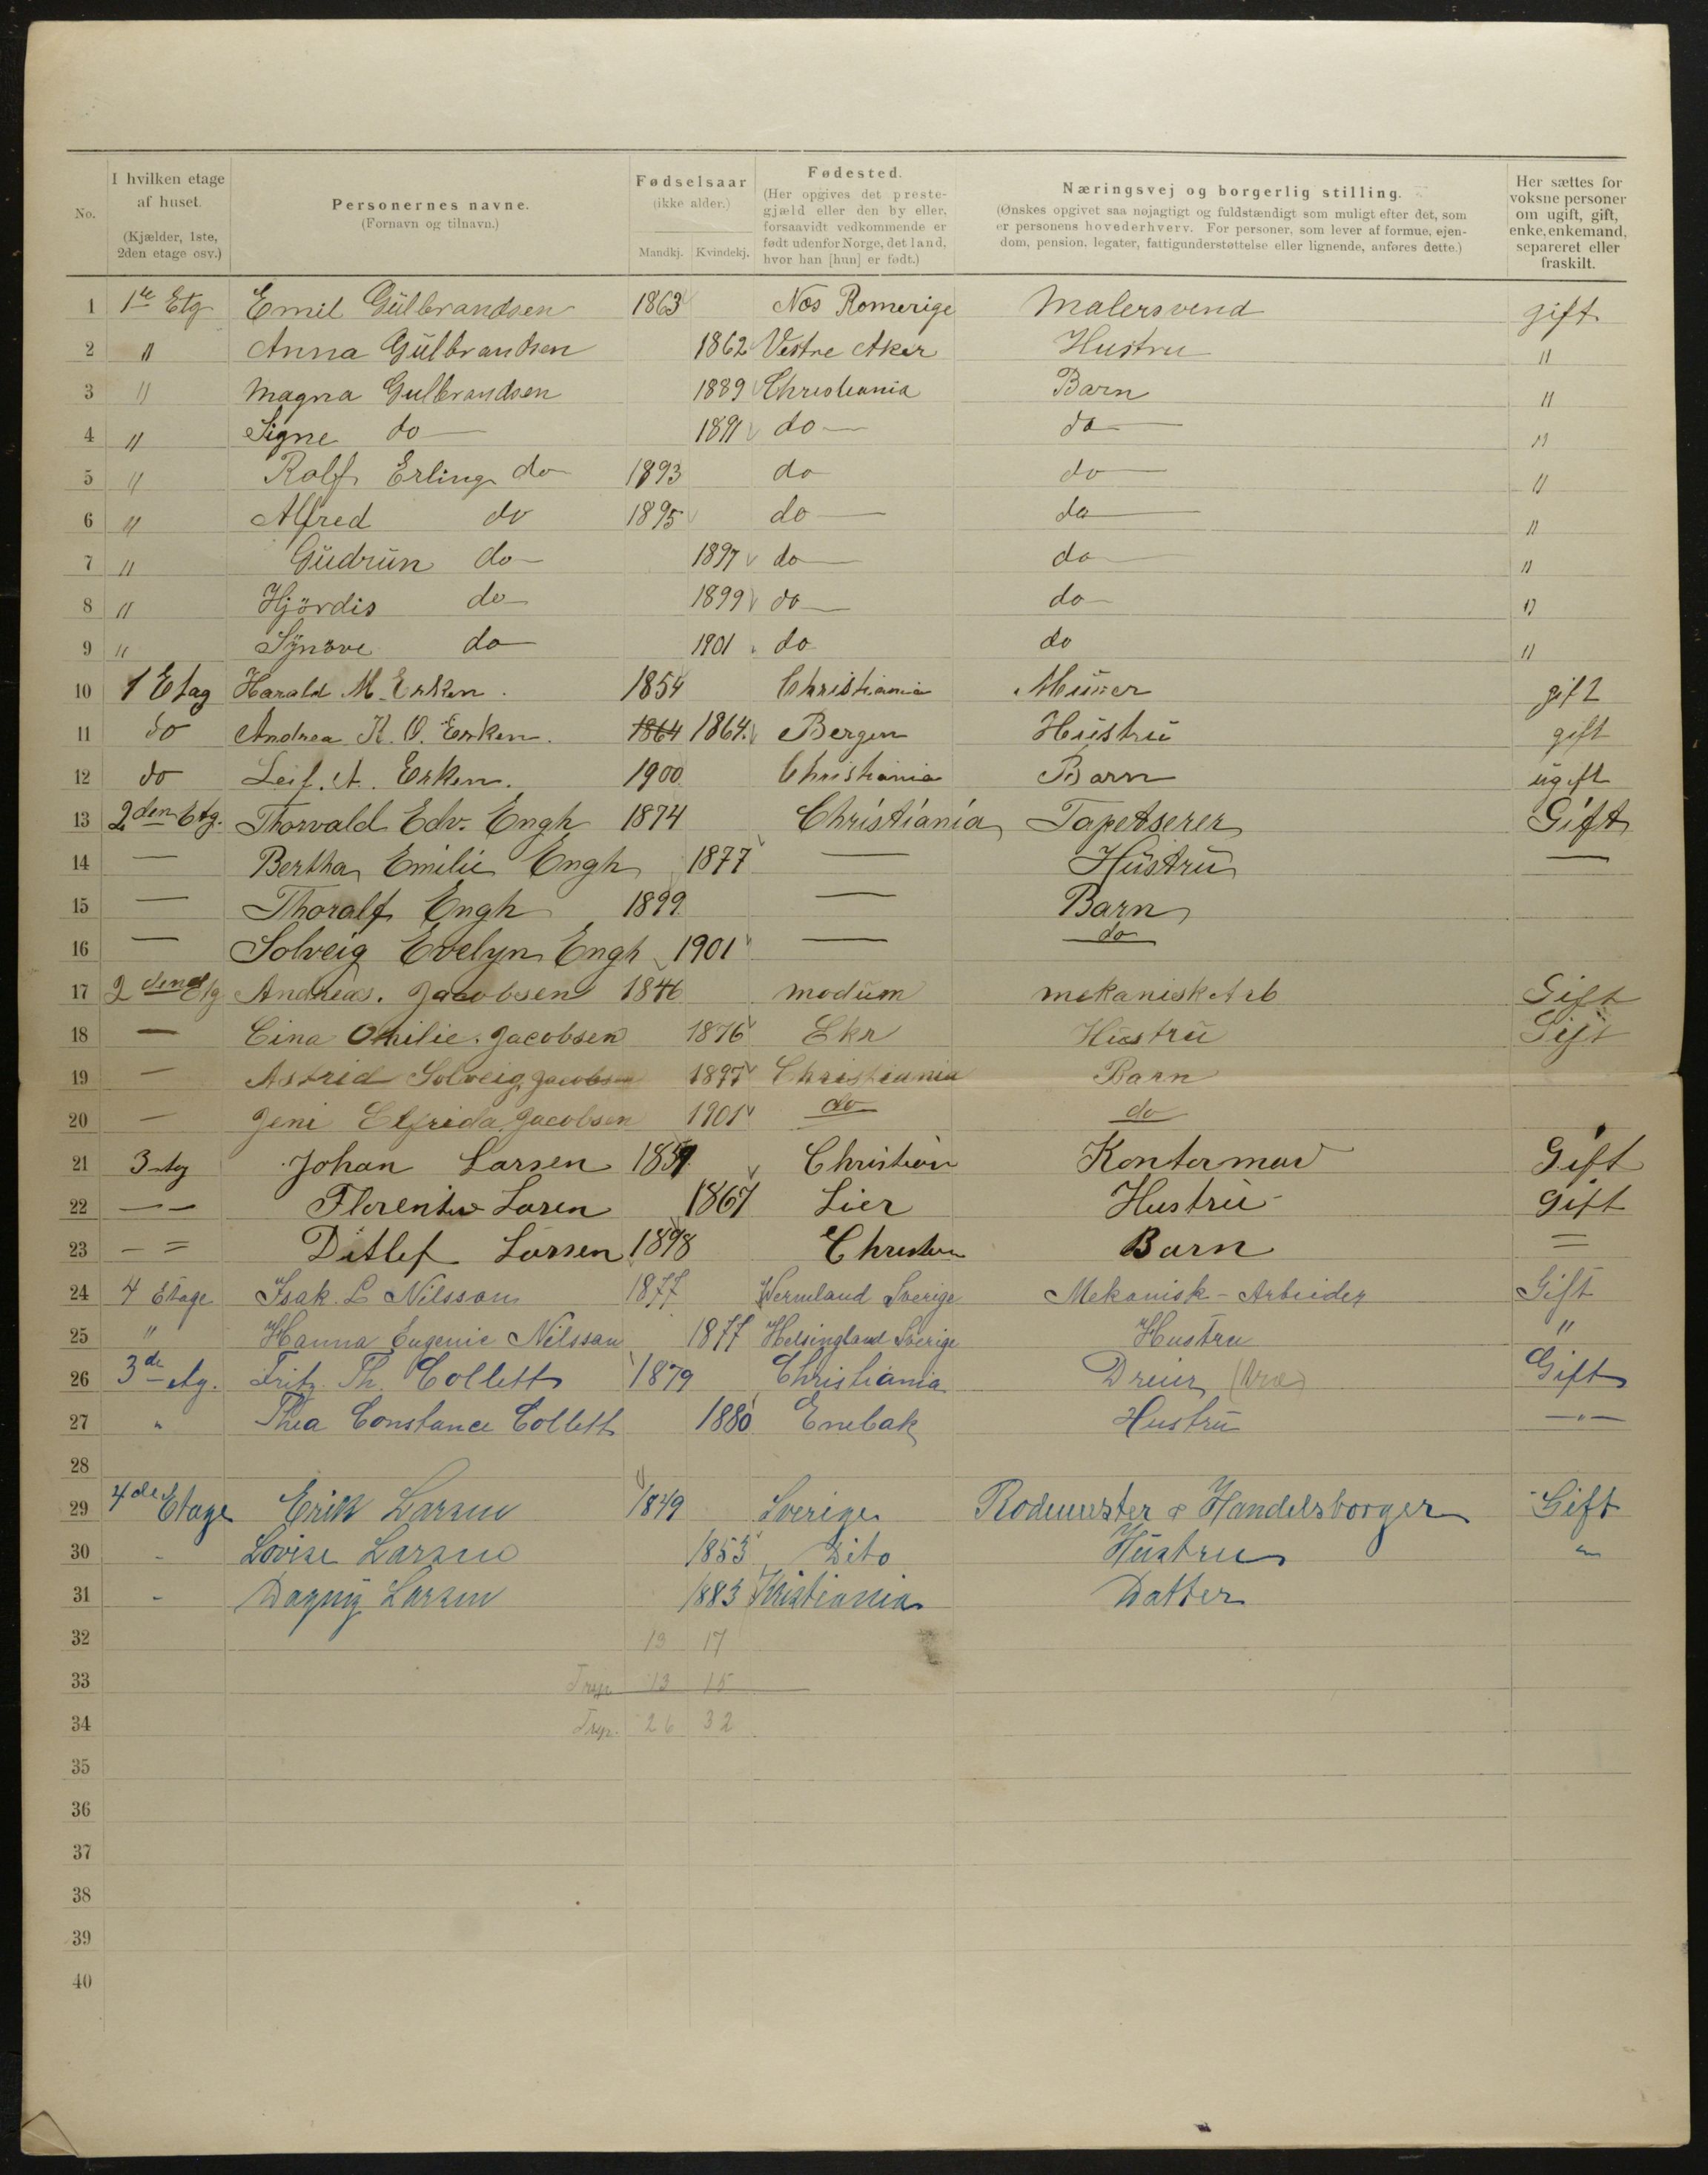 No.
I hvilken etage af huset. (Kjælder, 1ste, 2den etage osv.)
Personernes navne. (Fornavn og tilnavn.)
Fødselsaar (ikke alder.) Mandkj. Kvindekj.
Fødested. (Her opgives det prestegjæld eller den by eller, forsaavidt vedkommende er født udenfor Norge, det land, hvor han [hun] er født.)
Næringsvej og borgerlig stilling. (Ønskes opgivet saa nøjagtigt og fuldstændigt som muligt efter det, som er personens hovederhverv. For personer, som lever af formue, ejendom, pension, legater, fattigunderstøttelse eller lignende, anføres dette.)
Her sættes for voksne personer om ugift, gift, enke, enkemand, separeret eller fraskilt.
1 1ste Etg Emil Gülbrandsen 1863 Næs Romerige Malersvend gift
2 " Anna Gülbrandsen 1862 Vestre Aker Hustru "
3 " Magna Gulbrandsen 1889 Christiania Barn "
4 " Signe do 1891 do do "
5 " Rolf Erling do 1893 do do "
6 " Alfred do 1895 do do "
7 " Güdrün do 1897 do do "
8 " Hjördis do 1899 do do "
9 " Synöve do 1901 do do "
10 1 Etag Harald M. Erken. 1854 Christiania Mürer gift
11 do Andrea K. O. Erken. 1864 1864. Bergen Hüstrü gift
12 do Leif. A. Erken. 1900 Christiania Barn ügift
13 2den Etg. Thorvald Edv. Engh 1874 Christiania Tapetserer Gift
14 — Bertha Emilie Engh 1877 — Hüstrü —
15 — Thoralf Engh 1899 — Barn
16 — Solveig Evelyn Engh 1901 — do
17 2den Etg Andreas. Jacobsen 1846 modüm mekanisk Arb Gift
18 — Othilie. Jacobsen 1876 Eker Hüstrü Gift
19 — Astrid Solveig Jacobsen 1897 Christiania Barn
20 — Jeni Elfrida Jacobsen 1901 do do
21 3 etg Johan Larsen 185 Christian Gift
22 — — Larsen 1867 Lier Hustrü Gift
23 — = Ditlef Larsen 1898 Christian Barn =
24 4 Etage Isak. L Nilsson 1877 Wermland Sverige Mekanisk - Arbeider Gift
25 " Hanna Eugenie Nilsson 1877 Helsingland Sverige Hustru "
26 3de etg. Fritz Th. Collett 1879 Christiania Dreier Gift
27 " Thea Constance Collett 1880 Enebak Hustrü —"—
28
29 4de Etage Erik Larsen 1849 Sverige Rodemester & Handelsborger Gift
30 - Lovise Larsen 1853 Dito Hüstru "
31 - Dagny Larsen 1883 Kristiania Datter
32 13 17
33 13 15
34 26 32
35
36
37
38
39
40